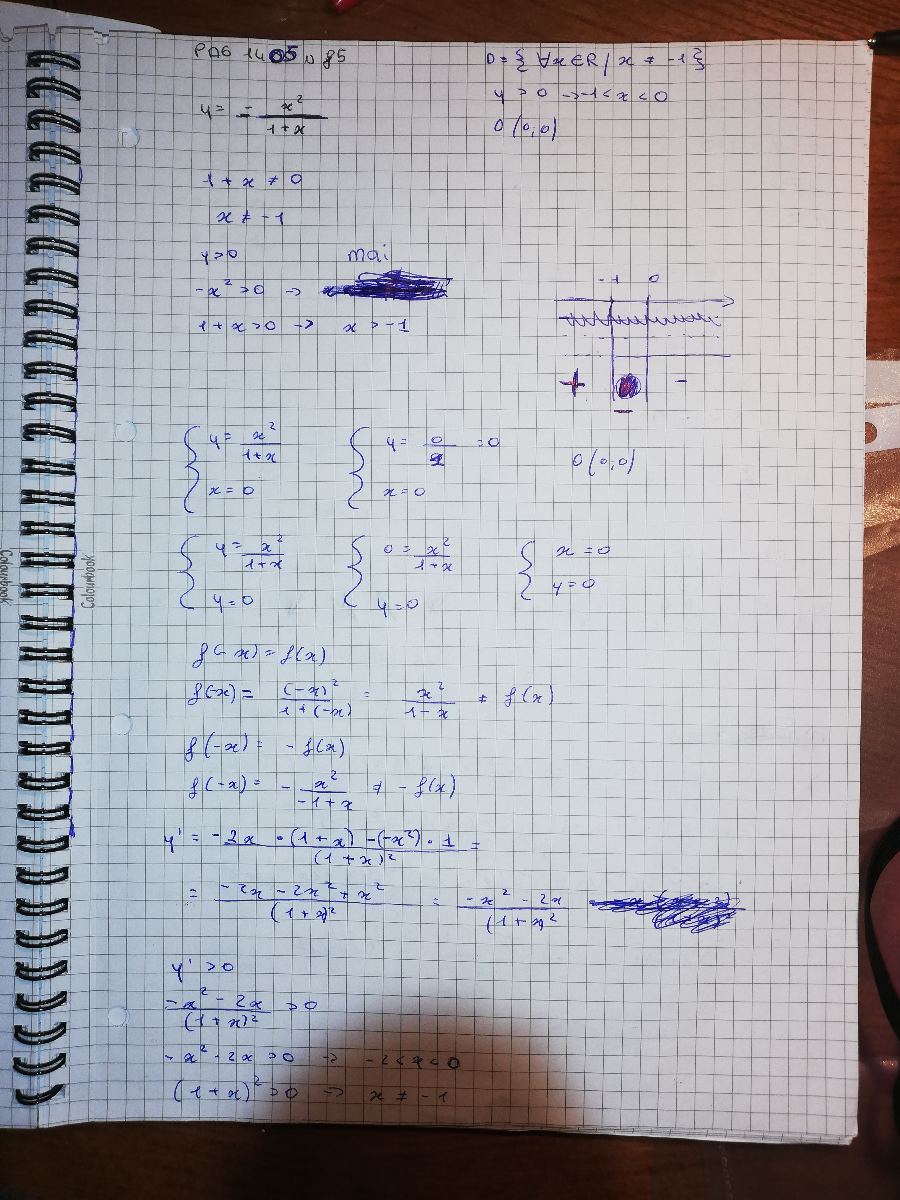 PAG 1405 n 85
D = { ∀x ∈ R / x ≠ -1 }
y > 0 → -1 < x < 0
0 (0;0)
y = - x² / 1+x
1 + x ≠ 0
x ≠ -1
y > 0
mai
-x² > 0 →
1 + x > 0 → x > -1
-1 0
+ -
-
{ y = x² / 1+x
x = 0
{ y = 0 / 1 = 0
x = 0
0 (0;0)
{ y = x² / 1+x
y = 0
{ 0 = x² / 1+x
y = 0
{ x = 0
y = 0
f(-x) = f(x)
f(-x) = (-x)² / 1+(-x) = x² / 1-x ≠ f(x)
f(-x) = - f(x)
f(-x) = - x² / -1+x ≠ - f(x)
y' = -2x · (1+x) -(-x²) · 1 / (1+x)² =
= -2x - 2x² + x² / (1+x)² = -x² - 2x / (1+x)²
y' > 0
-x² - 2x / (1+x)² > 0
-x² - 2x > 0 → -2 < x < 0
(1+x)² > 0 → x ≠ -1
Colourbook
Colourbook